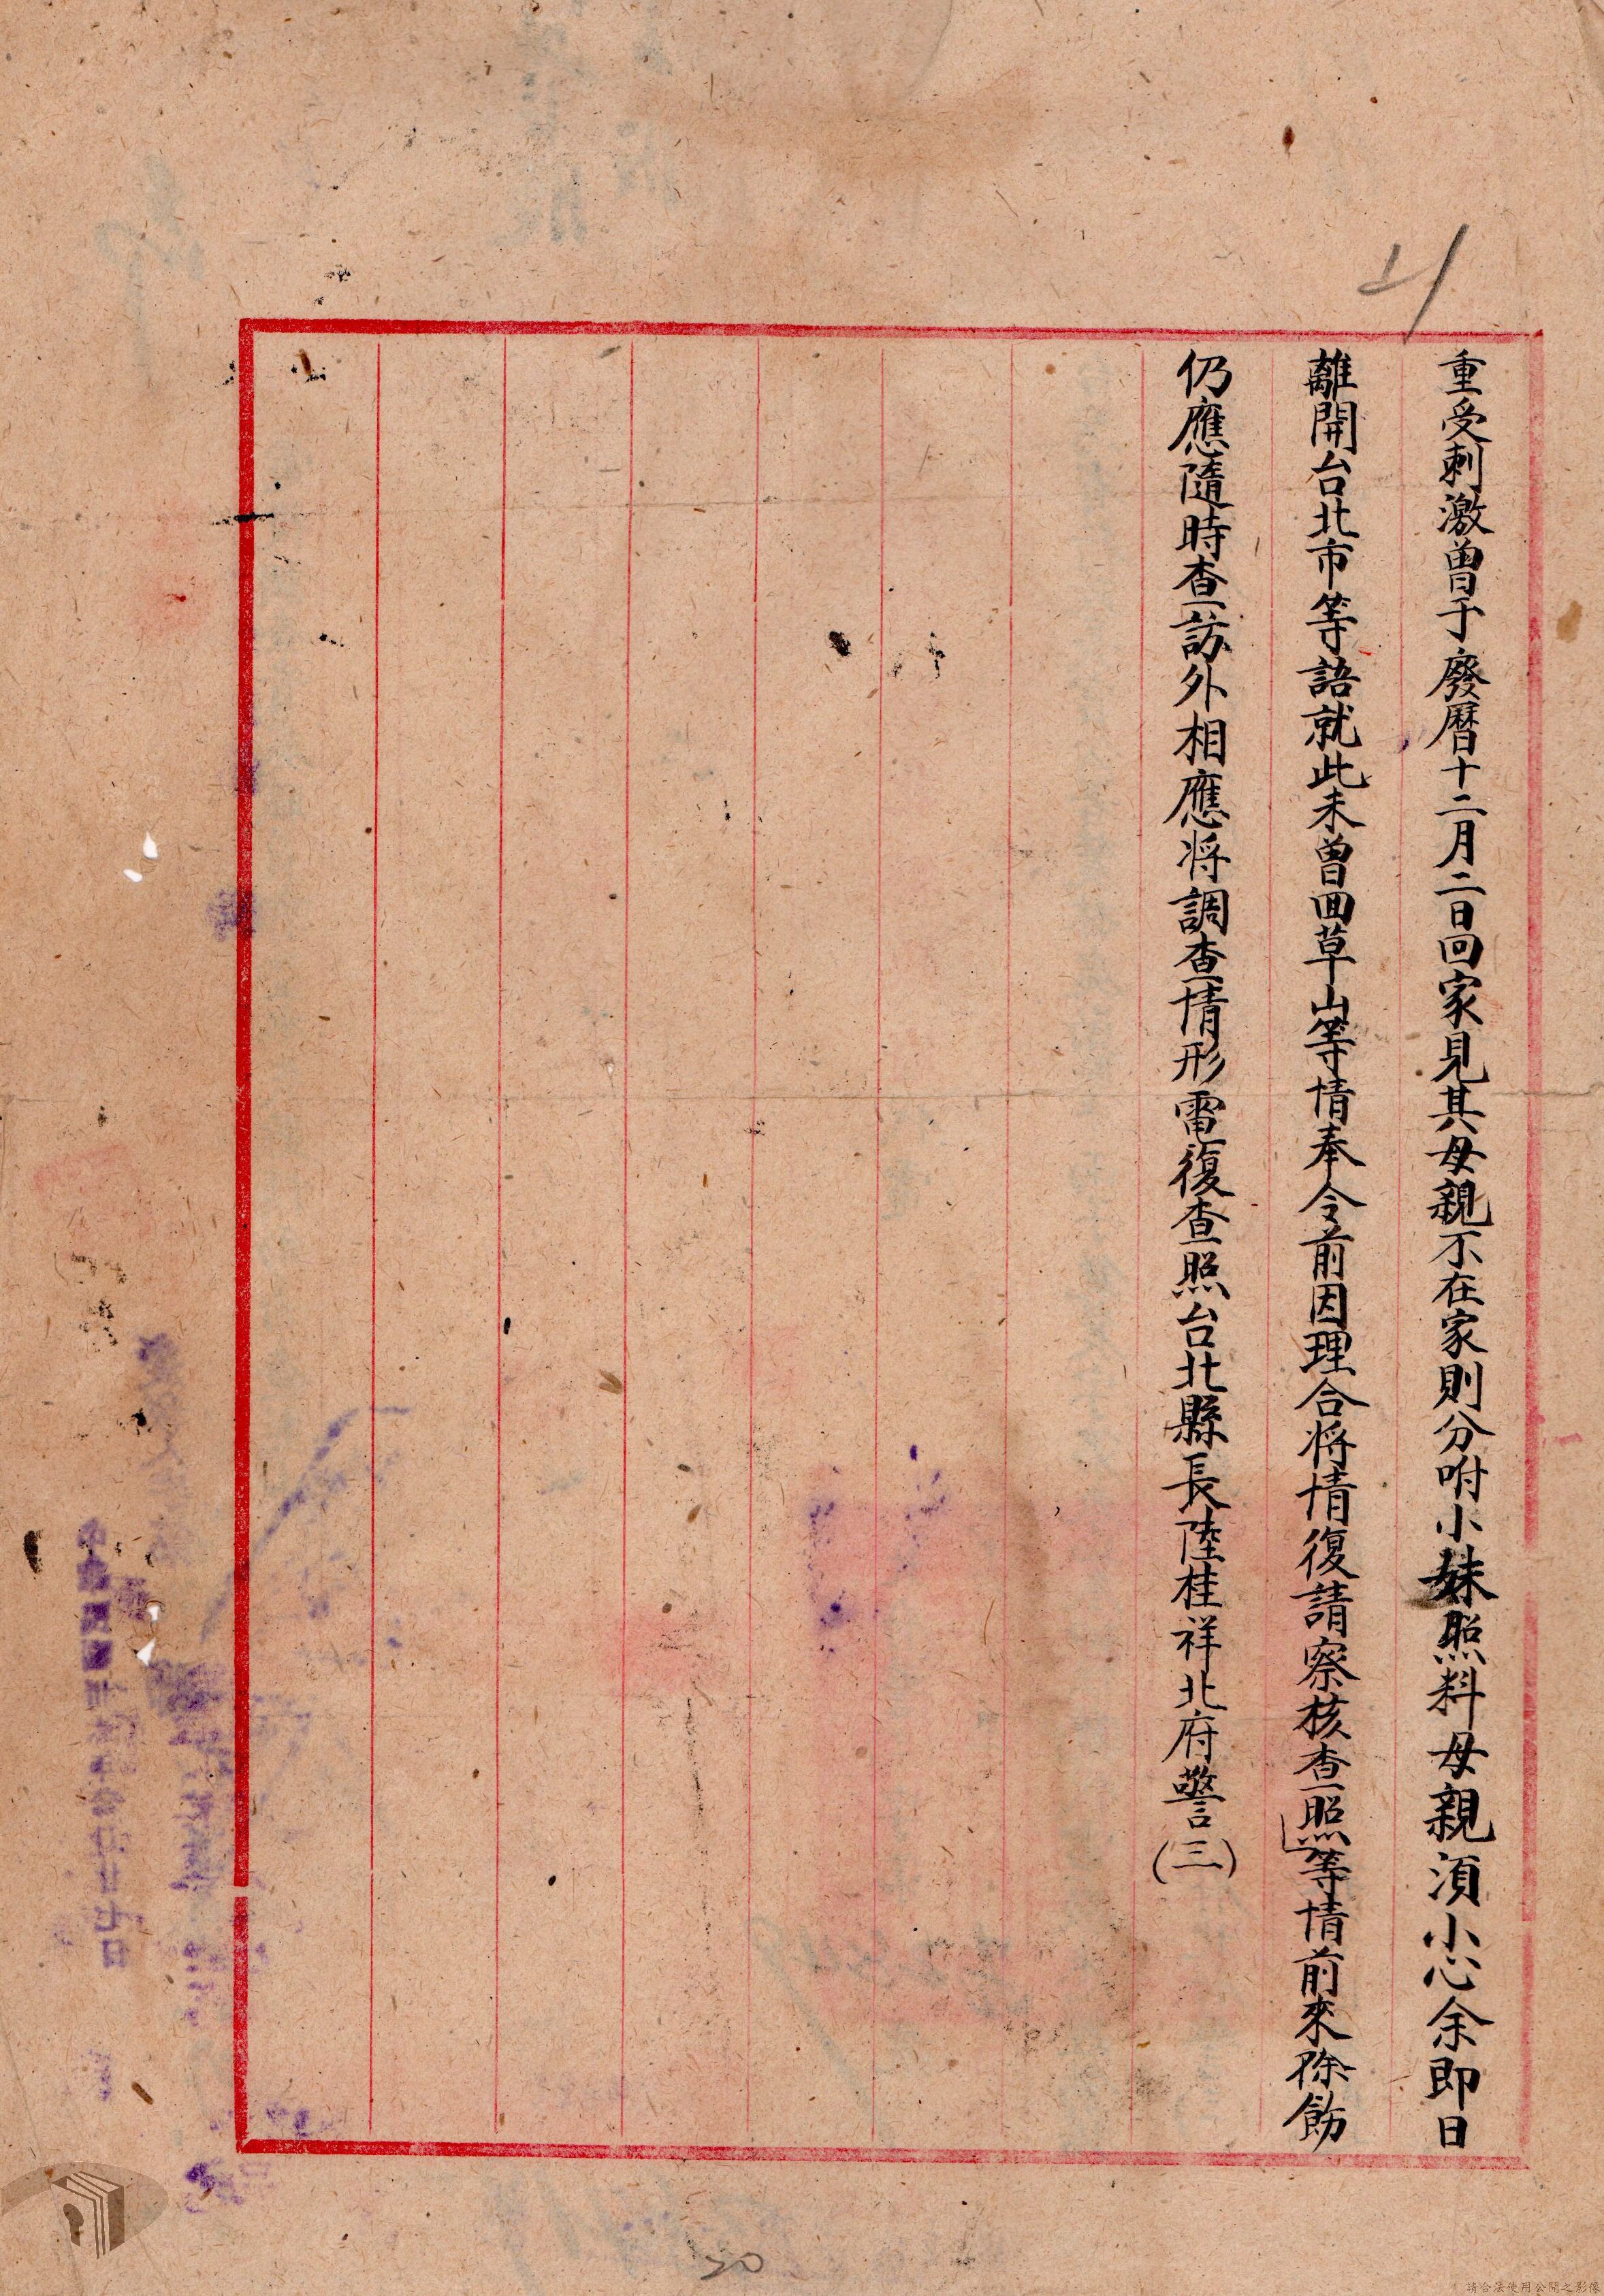 重受刺激曾于廢曆十二月二日回家見其母親不在家則分咐小妹照料母親須小心余即日
離開台北市等語就此未曾回草山等情奉令前因理合將情復請察核查照」等情前來除飭
仍應隨時查訪外相應將調查情形電復查照台北縣長陸桂祥北府警(三)
20
請合法使用公開之影像